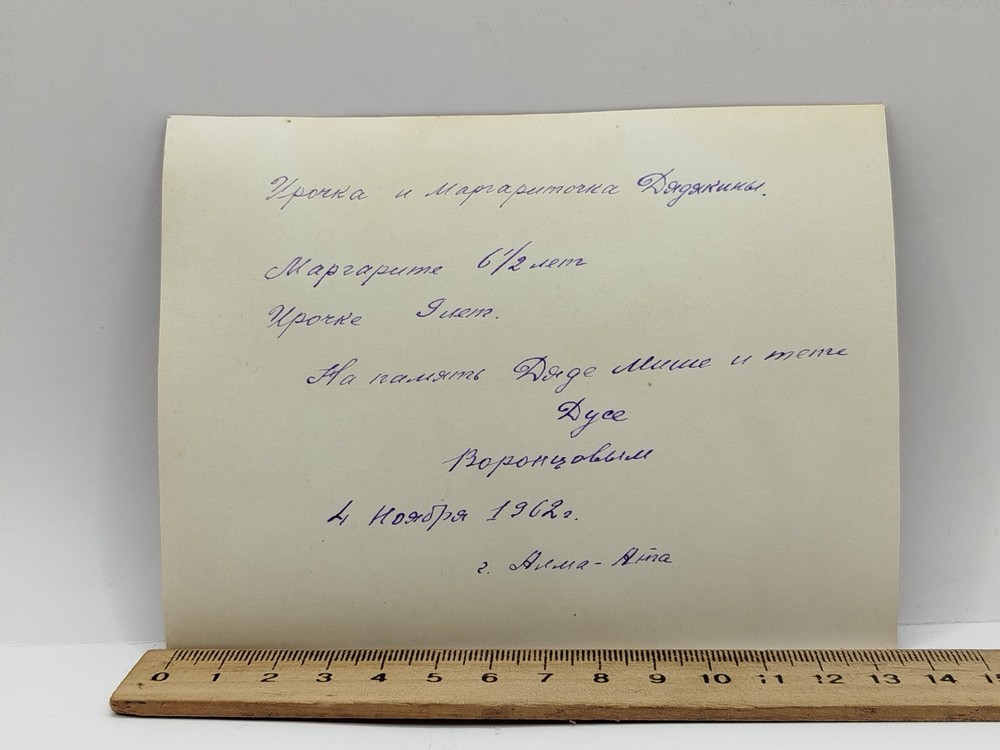 Ирочка и Маргариточка Дядякины.
Маргарите 6 1/2 лет
Ирочке 9 лет.
На память Дяде Мише и тете
Дусе
Воронцовым
4 Ноября 1962 г.
г. Алма-Ата
0 1 2 3 4 5 6 7 8 9 10 11 12 13 14 15